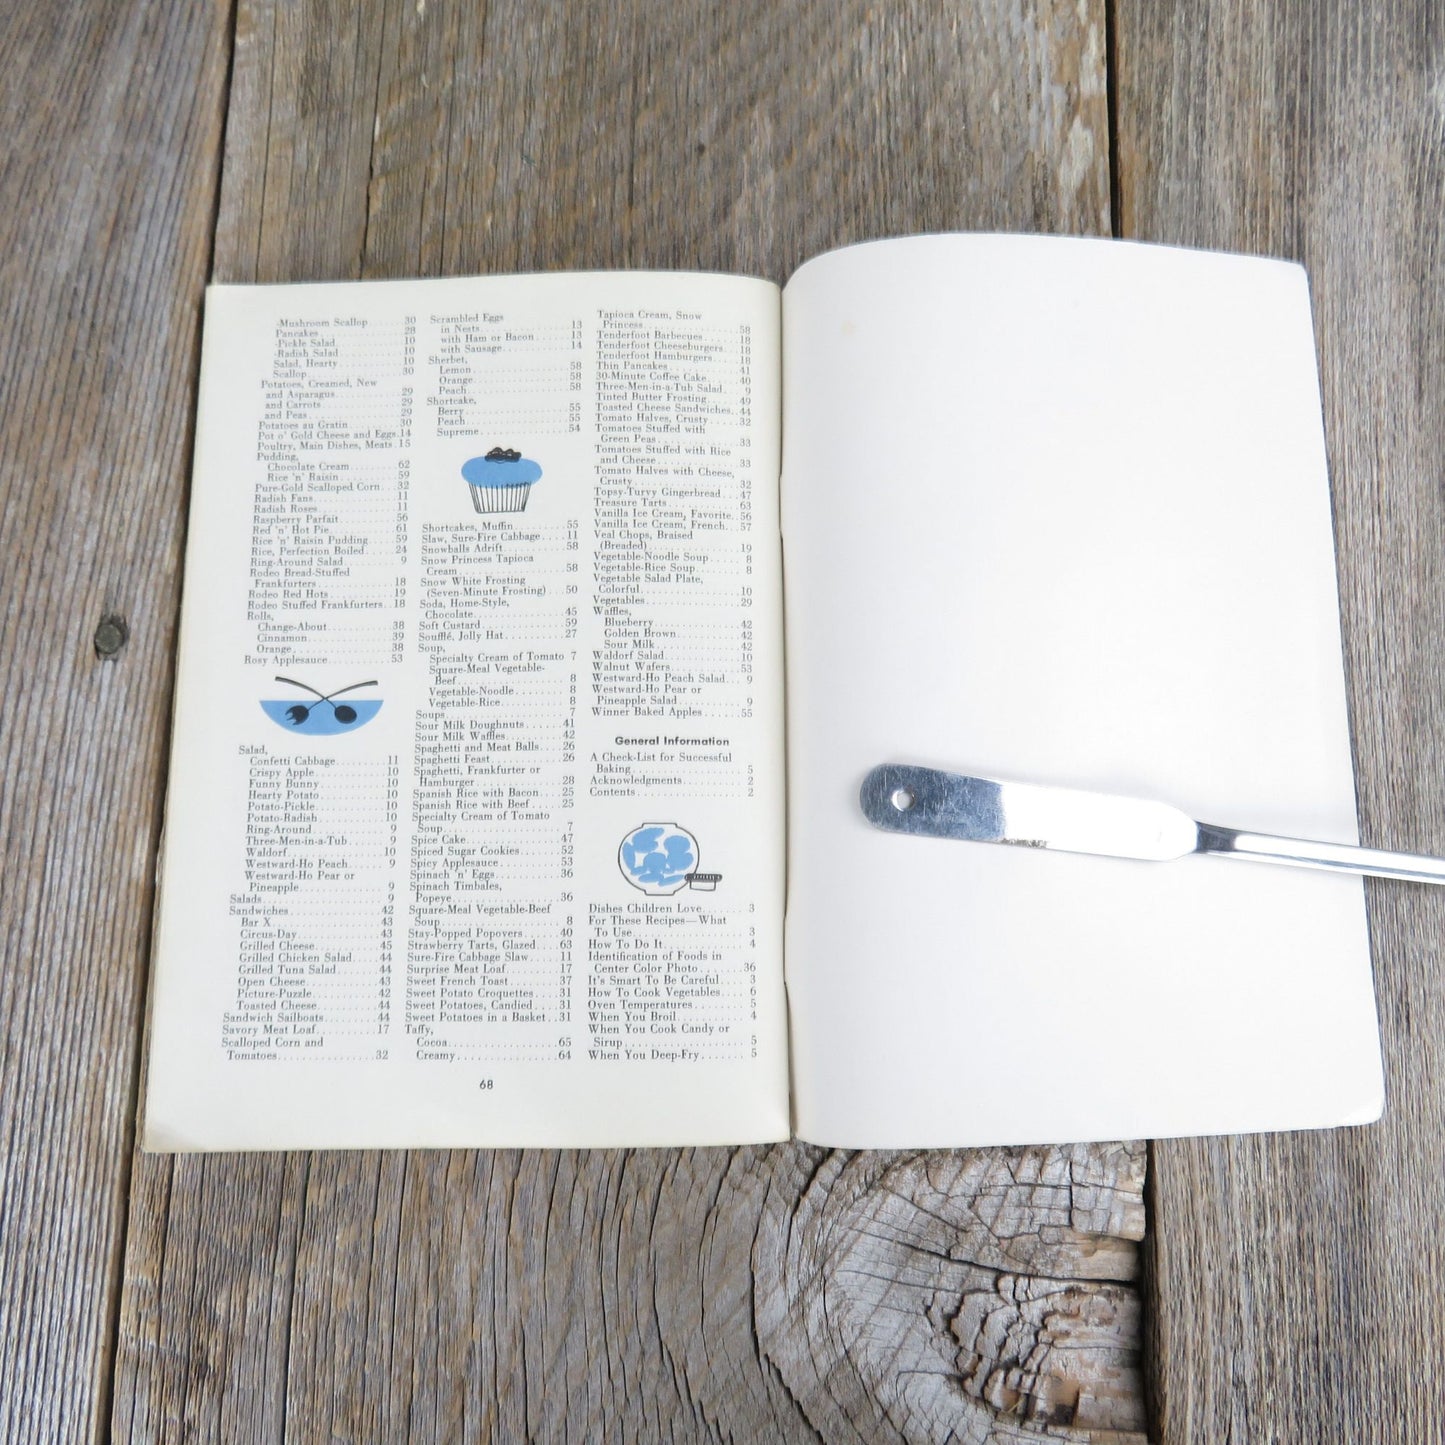 -Mushroom Scallop......30
Pancakes..............28
-Pickle Salad..........10
-Radish Salad..........10
Salad, Hearty.........10
Scallop...............30
Potatoes, Creamed, New
and Asparagus.........29
and Carrots...........29
and Peas..............29
Potatoes au Gratin.......30
Pot o' Gold Cheese and Eggs.14
Poultry, Main Dishes, Meats.15
Pudding,
Chocolate Cream........62
Rice 'n' Raisin.........59
Pure-Gold Scalloped Corn...32
Radish Fans..............11
Radish Roses.............11
Raspberry Parfait.........56
Red 'n' Hot Pie..........61
Rice 'n' Raisin Pudding....59
Rice, Perfection Boiled.....24
Ring-Around Salad......... 9
Rodeo Bread-Stuffed
Frankfurters............18
Rodeo Red Hots..........19
Rodeo Stuffed Frankfurters..18
Rolls,
Change-About..........38
Cinnamon..............39
Orange................38
Rosy Applesauce.........53
Salad,
Confetti Cabbage........11
Crispy Apple...........10
Funny Bunny...........10
Hearty Potato..........10
Potato-Pickle...........10
Potato-Radish..........10
Ring-Around........... 9
Three-Men-in-a-Tub..... 9
Waldorf...............10
Westward-Ho Peach..... 9
Westward-Ho Pear or
Pineapple............. 9
Salads.................. 9
Sandwiches..............42
Bar X.................43
Circus-Day.............43
Grilled Cheese..........45
Grilled Chicken Salad.....44
Grilled Tuna Salad.......44
Open Cheese............43
Picture-Puzzle...........42
Toasted Cheese..........44
Sandwich Sailboats........44
Savory Meat Loaf.........17
Scalloped Corn and
Tomatoes...............32
Scrambled Eggs
in Nests...............13
with Ham or Bacon.....13
with Sausage...........14
Sherbet,
Lemon................58
Orange................58
Peach.................58
Shortcake,
Berry.................55
Peach.................55
Supreme...............54
Shortcakes, Muffin.........55
Slaw, Sure-Fire Cabbage....11
Snowballs Adrift..........58
Snow Princess Tapioca
Cream.................58
Snow White Frosting
(Seven-Minute Frosting)...50
Soda, Home-Style,
Chocolate..............45
Soft Custard.............59
Soufflé, Jolly Hat.........27
Soup,
Specialty Cream of Tomato 7
Square-Meal Vegetable-
Beef.................. 8
Vegetable-Noodle....... 8
Vegetable-Rice.......... 8
Soups................... 7
Sour Milk Doughnuts......41
Sour Milk Waffles.........42
Spaghetti and Meat Balls....26
Spaghetti Feast...........26
Spaghetti, Frankfurter or
Hamburger.............28
Spanish Rice with Bacon....25
Spanish Rice with Beef.....25
Specialty Cream of Tomato
Soup.................. 7
Spice Cake..............47
Spiced Sugar Cookies......52
Spicy Applesauce.........53
Spinach 'n' Eggs..........36
Spinach Timbales,
Popeye................36
Square-Meal Vegetable-Beef
Soup.................. 8
Stay-Popped Popovers.....40
Strawberry Tarts, Glazed....63
Sure-Fire Cabbage Slaw.....11
Surprise Meat Loaf........17
Sweet French Toast........37
Sweet Potato Croquettes....31
Sweet Potatoes, Candied....31
Sweet Potatoes in a Basket..31
Taffy,
Cocoa.................65
Creamy................64
Tapioca Cream, Snow
Princess...............58
Tenderfoot Barbecues......18
Tenderfoot Cheeseburgers...18
Tenderfoot Hamburgers....18
Thin Pancakes............41
30-Minute Coffee Cake.....40
Three-Men-in-a-Tub Salad... 9
Tinted Butter Frosting......49
Toasted Cheese Sandwiches..44
Tomato Halves, Crusty.....32
Tomatoes Stuffed with
Green Peas.............33
Tomatoes Stuffed with Rice
and Cheese.............33
Tomato Halves with Cheese,
Crusty.................32
Topsy-Turvy Gingerbread...47
Treasure Tarts............63
Vanilla Ice Cream, Favorite..56
Vanilla Ice Cream, French...57
Veal Chops, Braised
(Breaded)..............19
Vegetable-Noodle Soup..... 8
Vegetable-Rice Soup....... 8
Vegetable Salad Plate,
Colorful................10
Vegetables...............29
Waffles,
Blueberry..............42
Golden Brown..........42
Sour Milk..............42
Waldorf Salad............10
Walnut Wafers...........53
Westward-Ho Peach Salad... 9
Westward-Ho Pear or
Pineapple Salad......... 9
Winner Baked Apples......55
General Information
A Check-List for Successful
Baking................. 5
Acknowledgments......... 2
Contents................ 2
Dishes Children Love....... 3
For These Recipes—What
To Use................ 3
How To Do It............ 4
Identification of Foods in
Center Color Photo.......36
It's Smart To Be Careful.... 3
How To Cook Vegetables.... 6
Oven Temperatures........ 5
When You Broil.......... 4
When You Cook Candy or
Sirup.................. 5
When You Deep-Fry....... 5
68